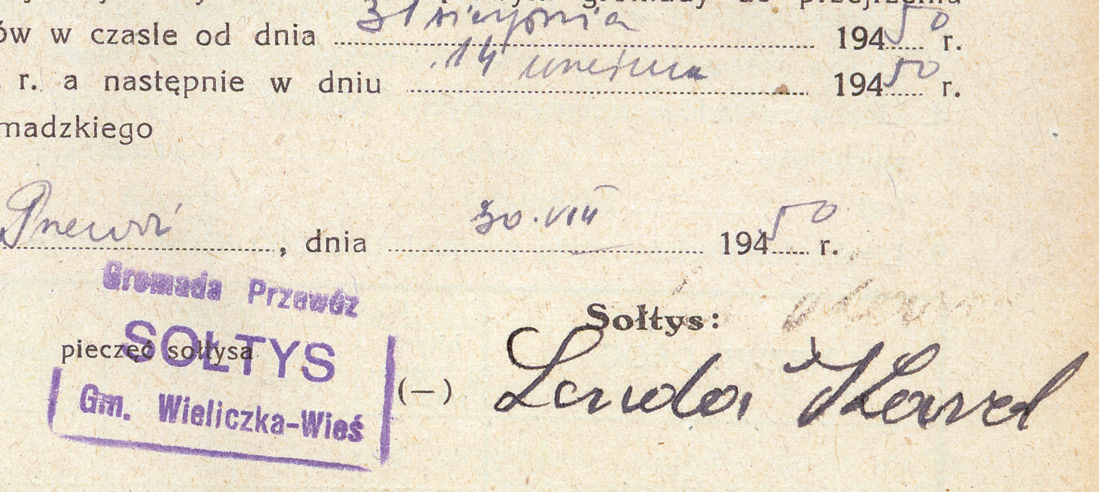 gromady do przejrzenia
ów w czasie od dnia 31 sierpnia 1950 r.
r. a następnie w dniu 14 września 1950 r.
madzkiego
Przewóz, dnia 30.VIII 1950 r.
Gromada Przewóz
Sołtys:
SOŁTYS
pieczęć sołtysa
(—) Lenda Karol
Gm. Wieliczka-Wieś